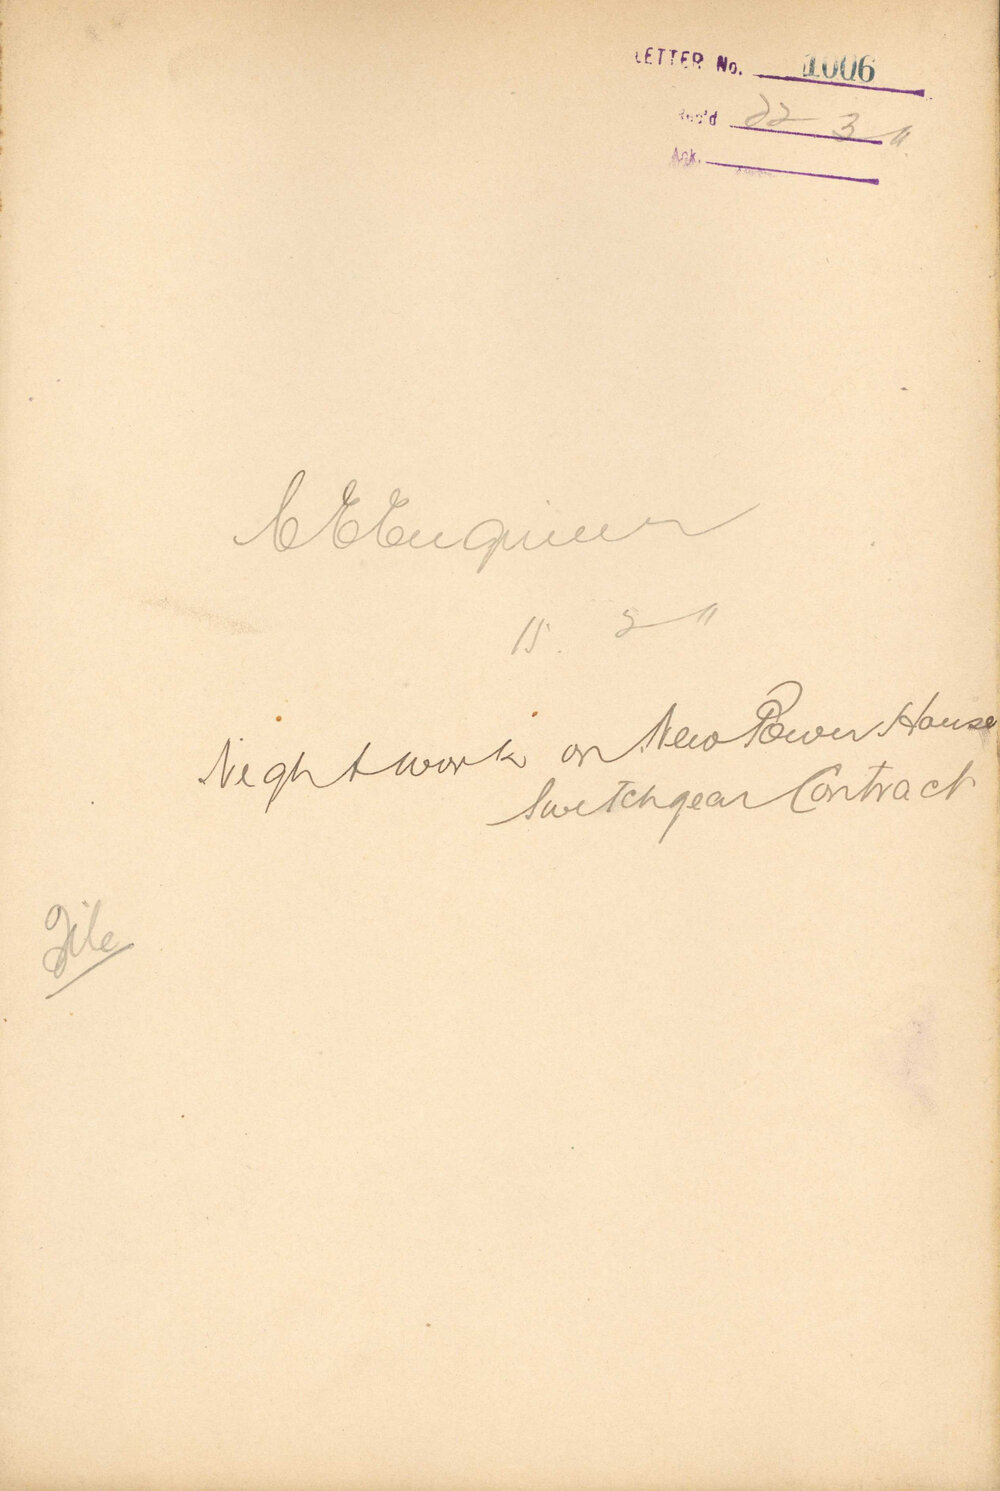 LETTER No. 1006
Rec'd 22 3 11
Ack.
C E Engineer
15. 2 11
Night work on New Power House
Switchgear Contract
File